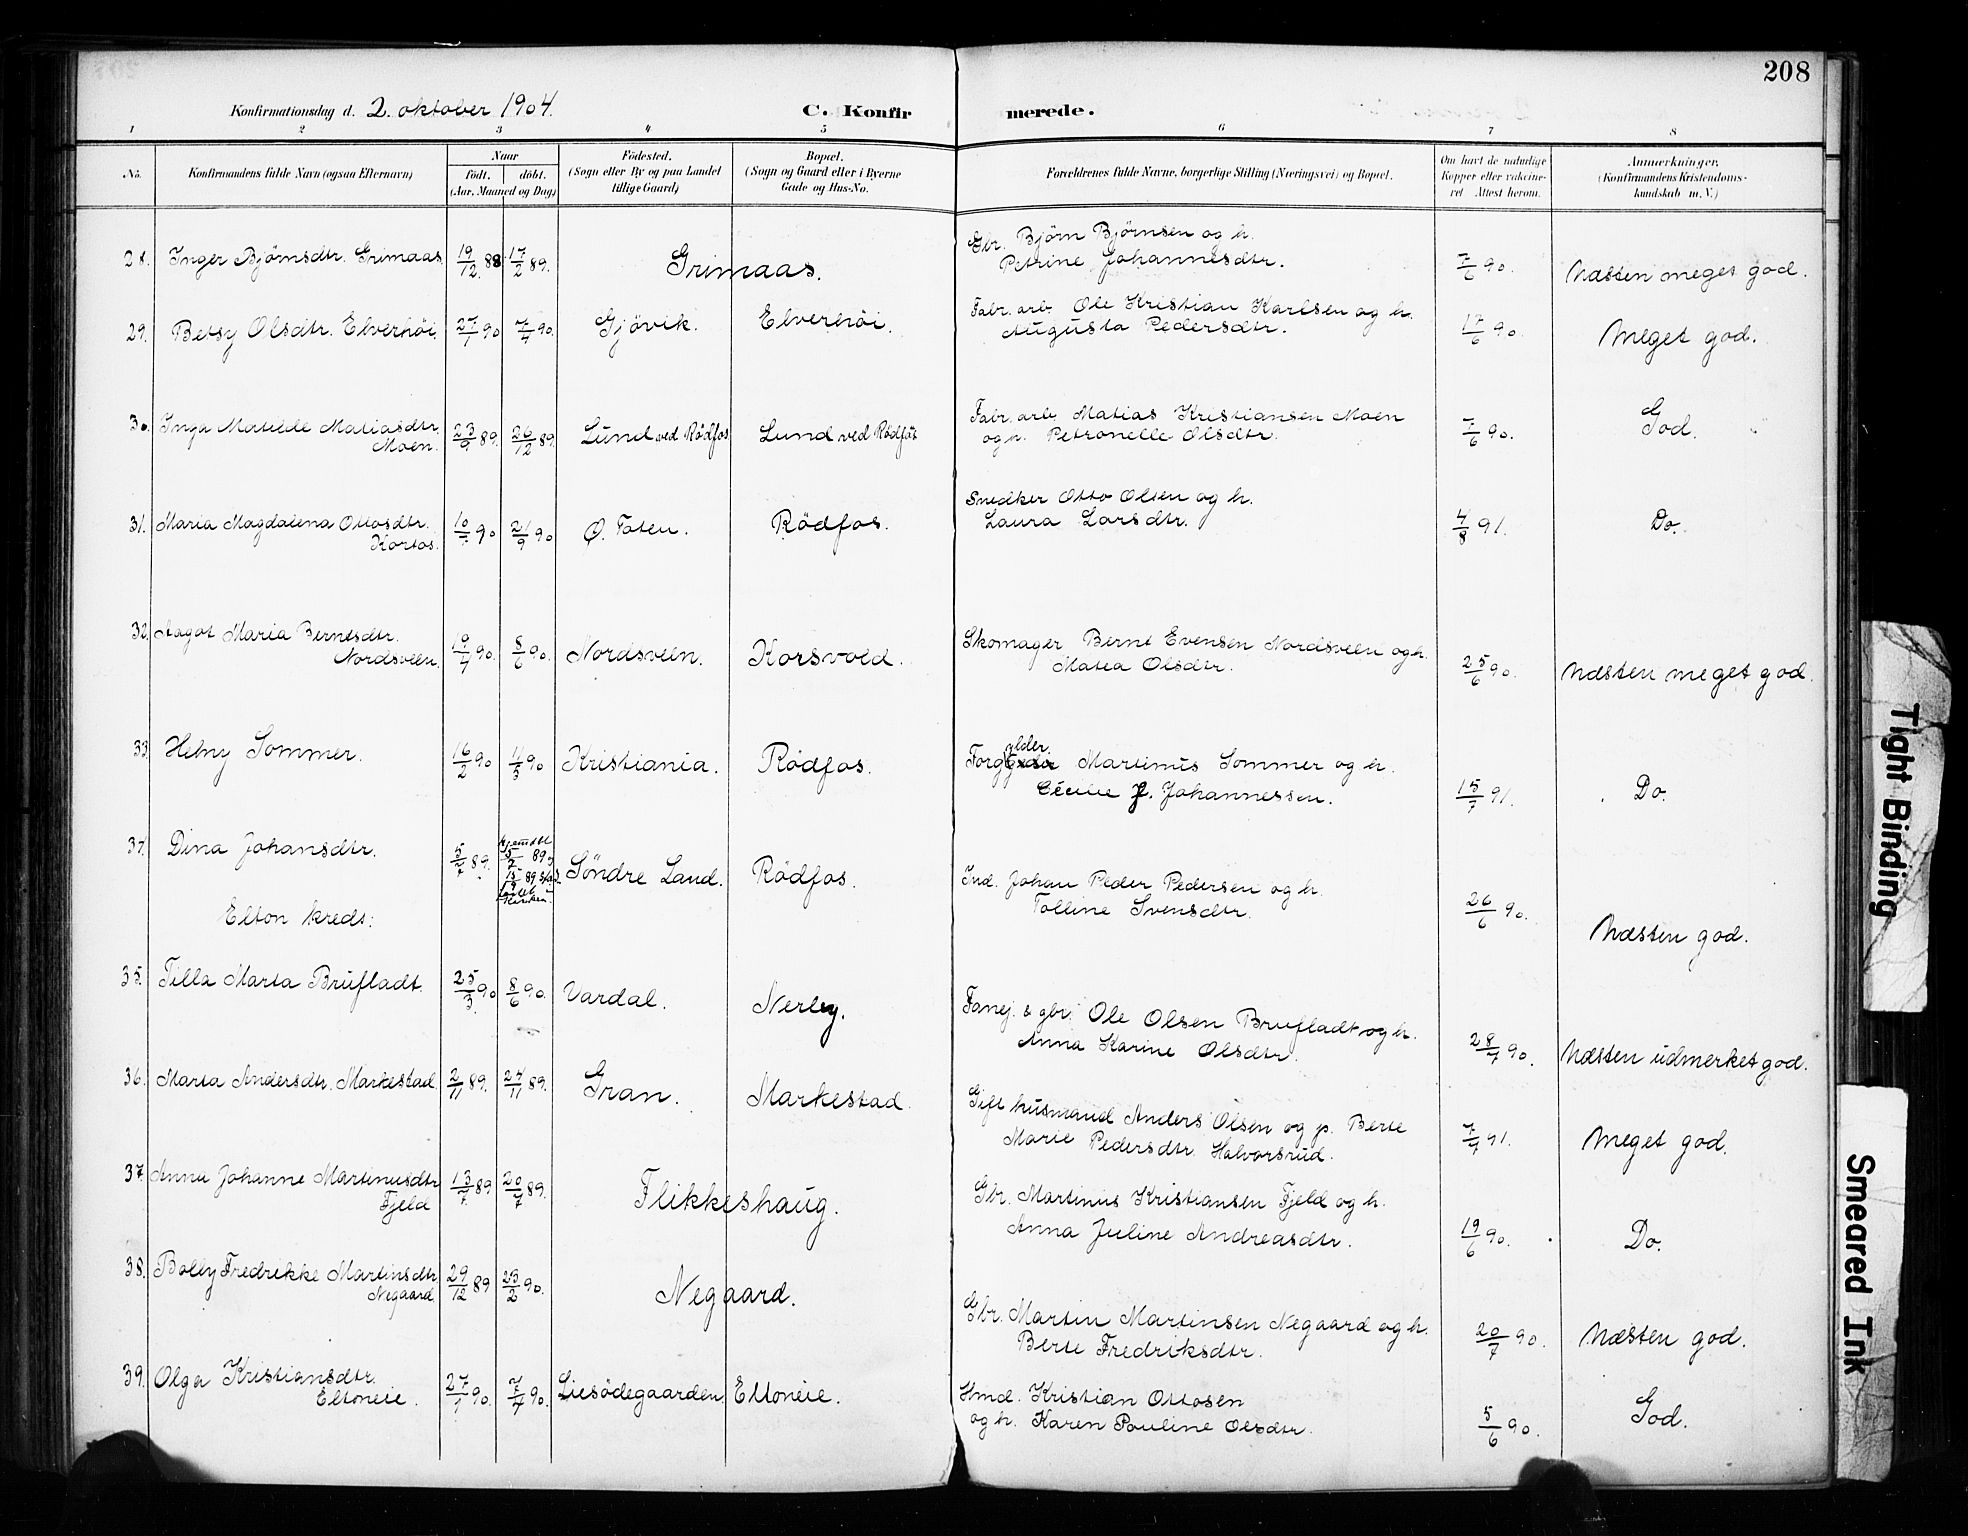 208
Konfirmationsdag d. 2. oktober 1904.
C. Konfirmerede.
1 2 3 4 5 6 7 8
No. Konfirmandens fulde Navn (ogsaa Efternavn) Naar født. døbt. (Aar, Maaned og Dag) Födested. (Sogn eller By og paa Landet tillige Gaard) Bopæl. (Sogn og Gaard eller i Byerne Gade og Hus-No. Forældrenes fulde Navne, borgerlige Stilling (Næringsvei) og Bopæl. Om havt de naturlige Kopper eller vaccineret Attest herom. Anmærkninger. (Konfirmandens Kristendomskundskab m. V.)
28. Inger Bjørnsdtr. Grimaas 19/12 88 17/2 89. Grimaas. Gbr. Bjørn Bjørnsen og h.
Petrine Johannesdtr. 7/6 90. Næsten meget god.
29. Betsy Olsdtr. Elverhöi. 27/1 90 7/4 90. Gjövik. Elverhöi. Fabr. arb. Ole Kristian Karlsen og h.
Augusta Pedersdtr. 17/6 90. Meget god.
30. Inga Matilde Matiasdtr.
Moen. 23/9 89. 26/12 89. Lund ved Rödfos Lund ved Rödfos Fabr. arb. Matias Kristiansen Moen
og h. Petronelle Olsdtr. 7/6 90. God.
31. Maria Magdalena Ottosdtr.
Kortos. 10/7 90 21/9 90 Ø. Toten. Rödfos. Snedker Otto Olsen og h.
Laura Larsdtr. 4/8 91. Do.
32. Aagot Maria Berntsdtr.
Nordsveen. 19/4 90. 8/6 90. Nordsveen. Korsvold. Skomager Bernt Evensen Nordsveen og h.
Matea Olsdtr. 25/6 90. Næsten meget god.
33. Helny Sommer. 16/2 90 11/5 90 Kristiania. Rödfos. Forgylder Martinus Sommer og h.
Cecilie J. Johannessen. 15/7 91. Do.
34. Dina Johansdtr. 5/7 89. hjemdbt 5/7 89 15/9 89 Søndre Land. Rödfos. Ind. Johan Peder Pedersen og h.
Tolline Svensdtr. 26/6 90. Næsten god.
Elton kreds:
35. Tilla Marta Brufladt. 25/3 90 8/6 90. Vardal. Nerby. Fanej. & gbr. Ole Olsen Brufladt og h.
Anna Karine Olsdtr. 28/7 90. Næsten udmerket god.
36. Marta Andersdtr. Markestad. 2/11 89. 24/11 89. Gran. Markestad. Gift husmand Anders Olsen og p. Berte
Marie Pedersdtr. Halvorsrud. 7/7 91. Meget god.
37. Anna Johanne Martinusdtr.
Fjeld 13/7 89 20/7 89. Flikkeshaug. Gbr. Martinus Kristiansen Fjeld og h.
Anna Juline Andreasdtr. 19/6 90. Do.
38. Bolly Fredrikke Martinsdtr.
Negaard 29/12 89 23/2 90. Negaard. Gbr. Martin Martinsen Negaard og h.
Berte Fredriksdtr. 20/7 90. Næsten god.
39. Olga Kristiansdtr.
Eltoneie. 27/1 90. 7/4 90. Liesödegaarden Eltoneie. Hmd. Kristian Ottosen
og h. Karen Pauline Olsdtr. 5/6 90. God.
Tight Binding
Smeared Ink